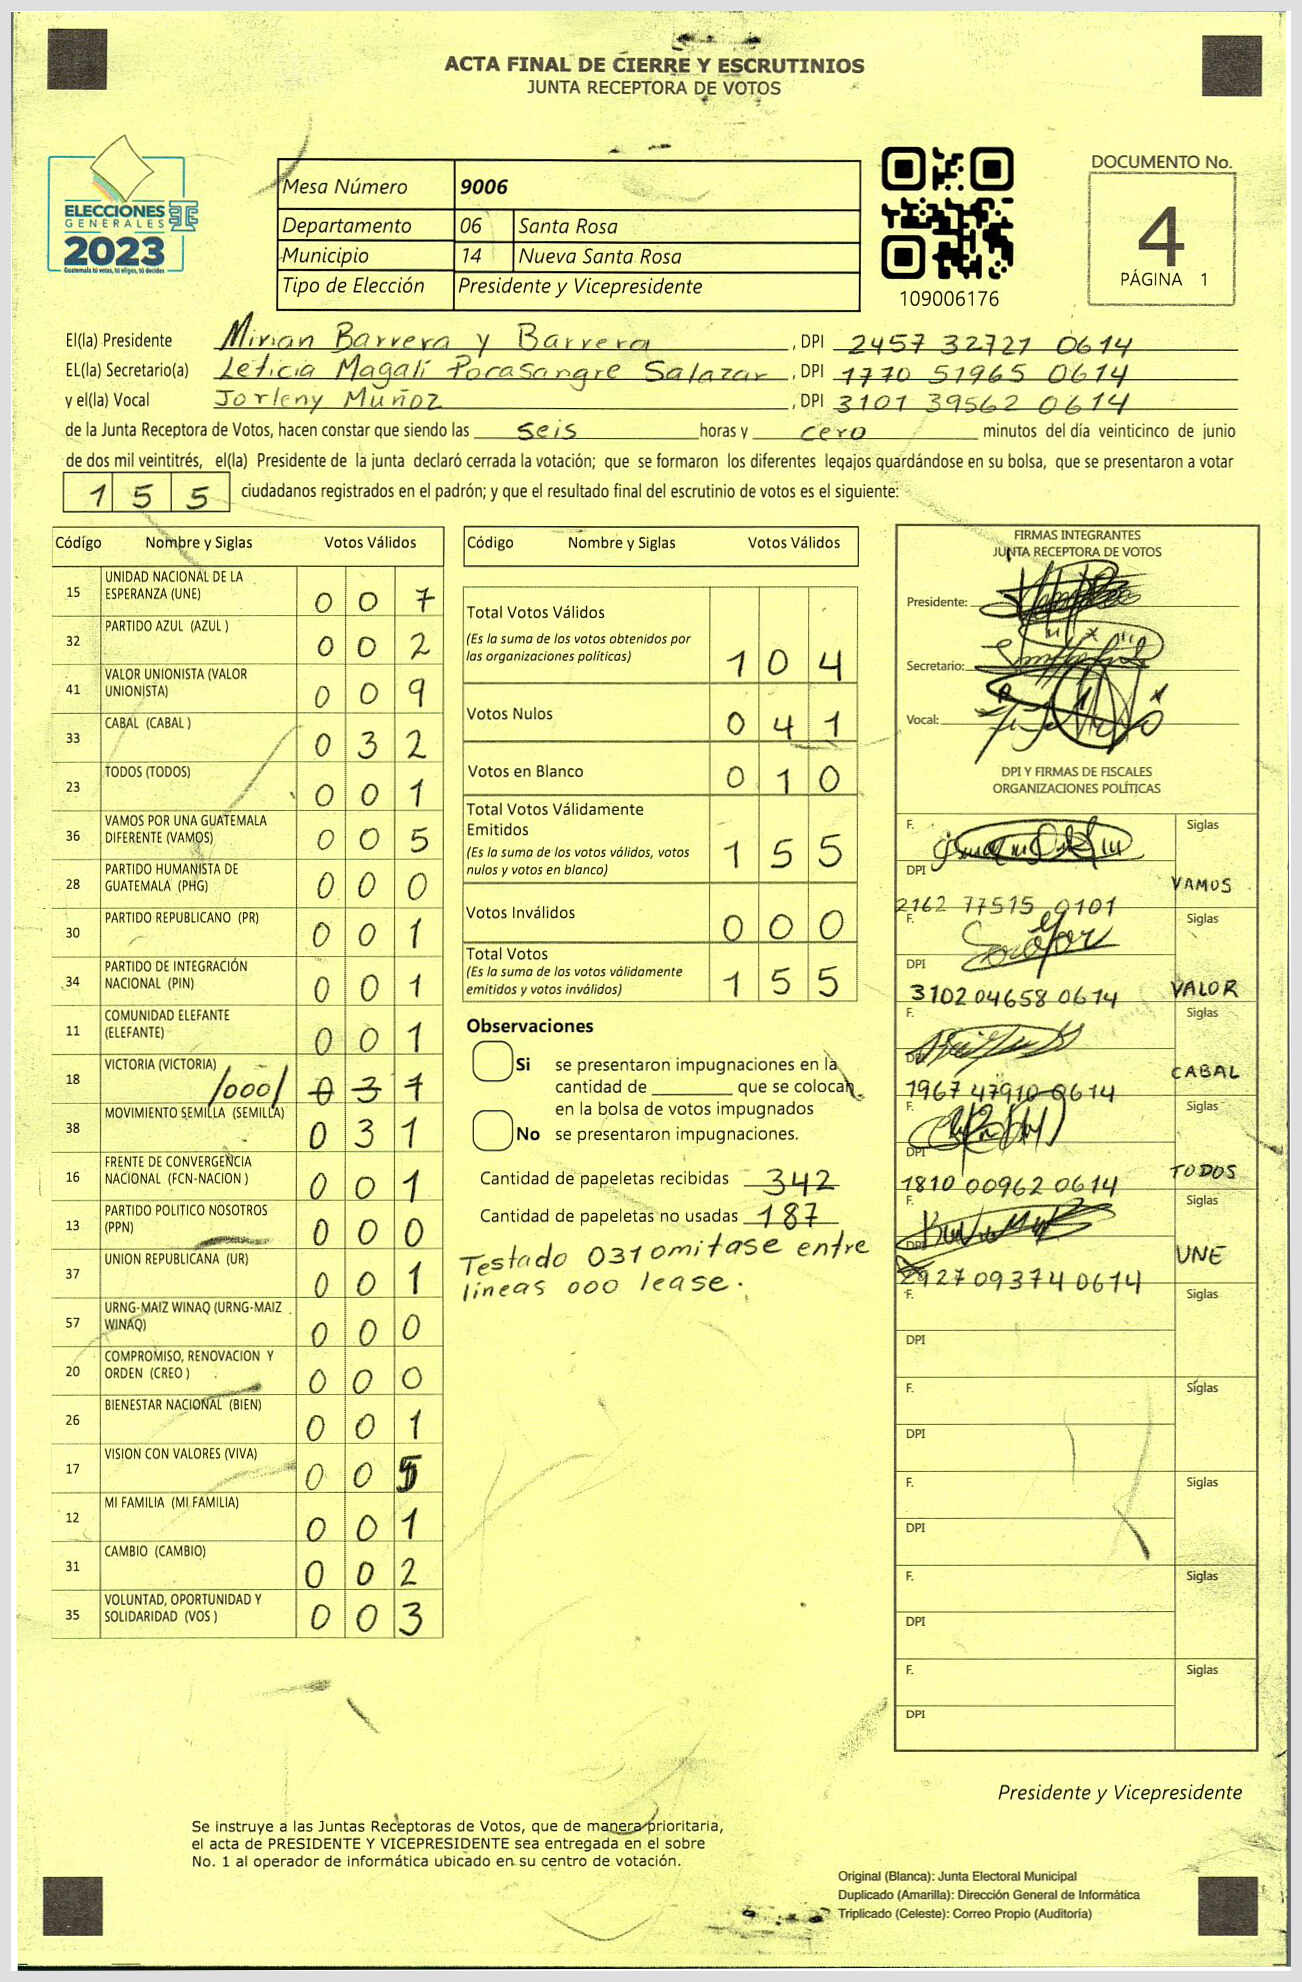 ACTA FINAL DE CIERRE Y ESCRUTINIOS
JUNTA RECEPTORA DE VOTOS
ELECCIONES
GENERALES
2023
Guatemala tú votas, tú eliges, tú decides
Mesa Número 9006
Departamento 06 Santa Rosa
Municipio 14 Nueva Santa Rosa
Tipo de Elección Presidente y Vicepresidente
109006176
DOCUMENTO No.
4
PÁGINA 1
El(la) Presidente Mirian Barrera y Barrera, DPI 2457 32721 0614
EL(la) Secretario(a) Leticia Magalí Pocasangre Salazar, DPI 1770 51965 0614
y el(la) Vocal Jorleny Muñoz, DPI 3101 39562 0614
de la Junta Receptora de Votos, hacen constar que siendo las seis horas y cero minutos del día veinticinco de junio
de dos mil veintitrés, el(la) Presidente de la junta declaró cerrada la votación; que se formaron los diferentes legajos guardándose en su bolsa, que se presentaron a votar
155 ciudadanos registrados en el padrón; y que el resultado final del escrutinio de votos es el siguiente:
Código Nombre y Siglas Votos Válidos
15 UNIDAD NACIONAL DE LA ESPERANZA (UNE) 0 0 7
32 PARTIDO AZUL (AZUL ) 0 0 2
41 VALOR UNIONISTA (VALOR UNIONISTA) 0 0 9
33 CABAL (CABAL ) 0 3 2
23 TODOS (TODOS) 0 0 1
36 VAMOS POR UNA GUATEMALA DIFERENTE (VAMOS) 0 0 5
28 PARTIDO HUMANISTA DE GUATEMALA (PHG) 0 0 0
30 PARTIDO REPUBLICANO (PR) 0 0 1
34 PARTIDO DE INTEGRACIÓN NACIONAL (PIN) 0 0 1
11 COMUNIDAD ELEFANTE (ELEFANTE) 0 0 1
18 VICTORIA (VICTORIA) /000/ 0 3 1
38 MOVIMIENTO SEMILLA (SEMILLA) 0 3 1
16 FRENTE DE CONVERGENCIA NACIONAL (FCN-NACION ) 0 0 1
13 PARTIDO POLITICO NOSOTROS (PPN) 0 0 0
37 UNION REPUBLICANA (UR) 0 0 1
57 URNG-MAIZ WINAQ (URNG-MAIZ WINAQ) 0 0 0
20 COMPROMISO, RENOVACION Y ORDEN (CREO ) 0 0 0
26 BIENESTAR NACIONAL (BIEN) 0 0 1
17 VISION CON VALORES (VIVA) 0 0 5
12 MI FAMILIA (MI FAMILIA) 0 0 1
31 CAMBIO (CAMBIO) 0 0 2
35 VOLUNTAD, OPORTUNIDAD Y SOLIDARIDAD (VOS ) 0 0 3
Código Nombre y Siglas Votos Válidos
Total Votos Válidos
(Es la suma de los votos obtenidos por
las organizaciones políticas) 1 0 4
Votos Nulos 0 4 1
Votos en Blanco 0 1 0
Total Votos Válidamente
Emitidos
(Es la suma de los votos válidos, votos
nulos y votos en blanco) 1 5 5
Votos Inválidos 0 0 0
Total Votos
(Es la suma de los votos válidamente
emitidos y votos inválidos) 1 5 5
Observaciones
Si se presentaron impugnaciones en la
cantidad de ________ que se colocan
en la bolsa de votos impugnados
No se presentaron impugnaciones.
Cantidad de papeletas recibidas 342
Cantidad de papeletas no usadas 187
Testado 031 omitase entre
lineas 000 lease.
FIRMAS INTEGRANTES
JUNTA RECEPTORA DE VOTOS
Presidente:
Secretario:
Vocal:
DPI Y FIRMAS DE FISCALES
ORGANIZACIONES POLÍTICAS
F. Siglas
DPI 2162 77515 0101 VAMOS
F. Siglas
DPI 3102 04658 0614 VALOR
F. Siglas
DPI 1967 47910 0614 CABAL
F. Siglas
DPI 1810 00962 0614 TODOS
F. Siglas
DPI 2927 09374 0614 UNE
F. Siglas
DPI
F. Siglas
DPI
F. Siglas
DPI
F. Siglas
DPI
F. Siglas
DPI
Presidente y Vicepresidente
Se instruye a las Juntas Receptoras de Votos, que de manera prioritaria,
el acta de PRESIDENTE Y VICEPRESIDENTE sea entregada en el sobre
No. 1 al operador de informática ubicado en su centro de votación.
Original (Blanca): Junta Electoral Municipal
Duplicado (Amarilla): Dirección General de Informática
Triplicado (Celeste): Correo Propio (Auditoría)